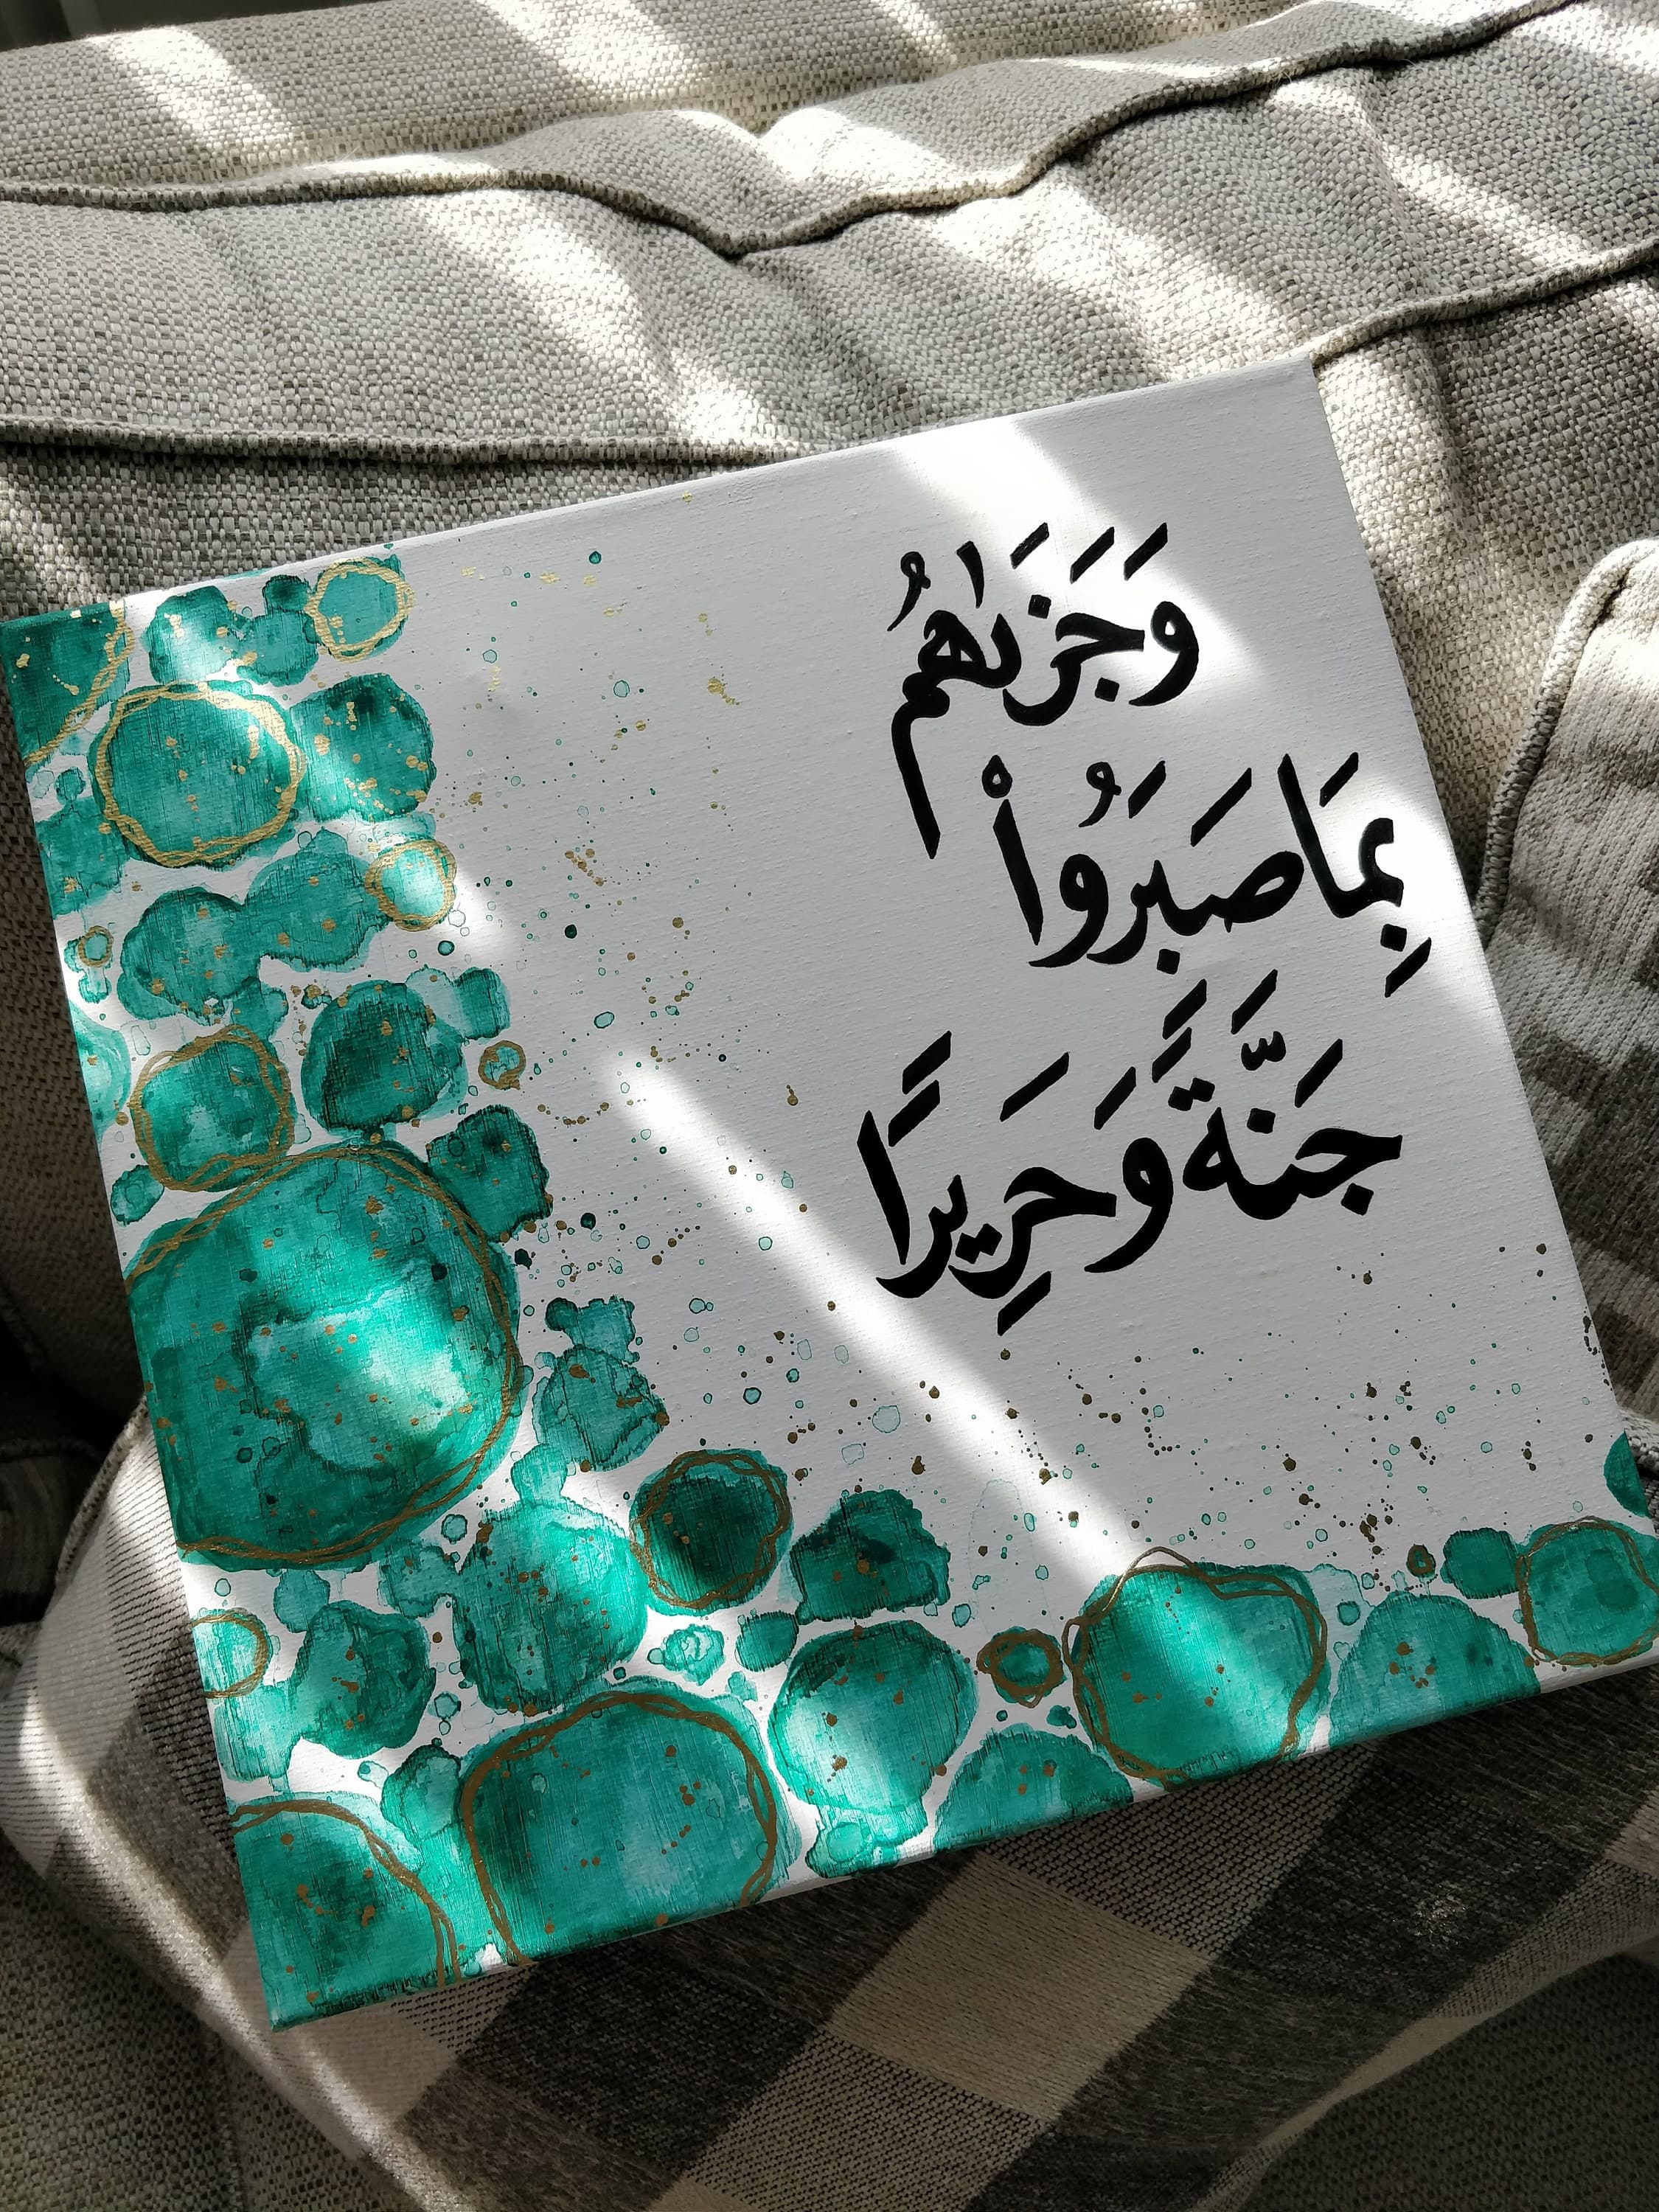 وَجَزَىٰهُم
بِمَا صَبَرُوا۟
جَنَّةً وَحَرِيرًا